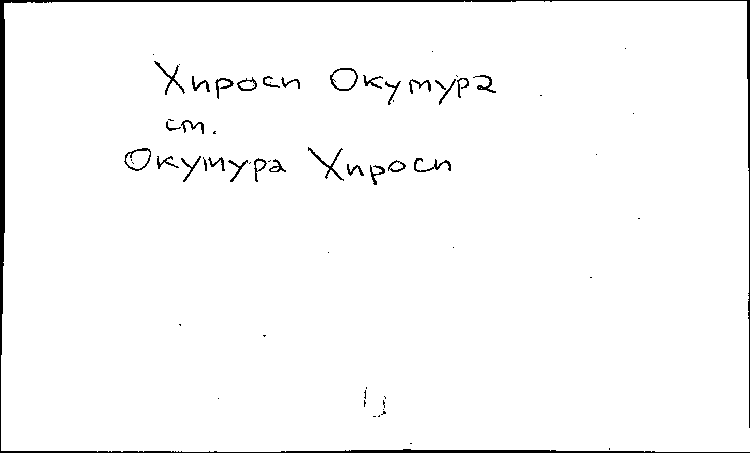 Хироси Окумура
см.
Окумура Хироси